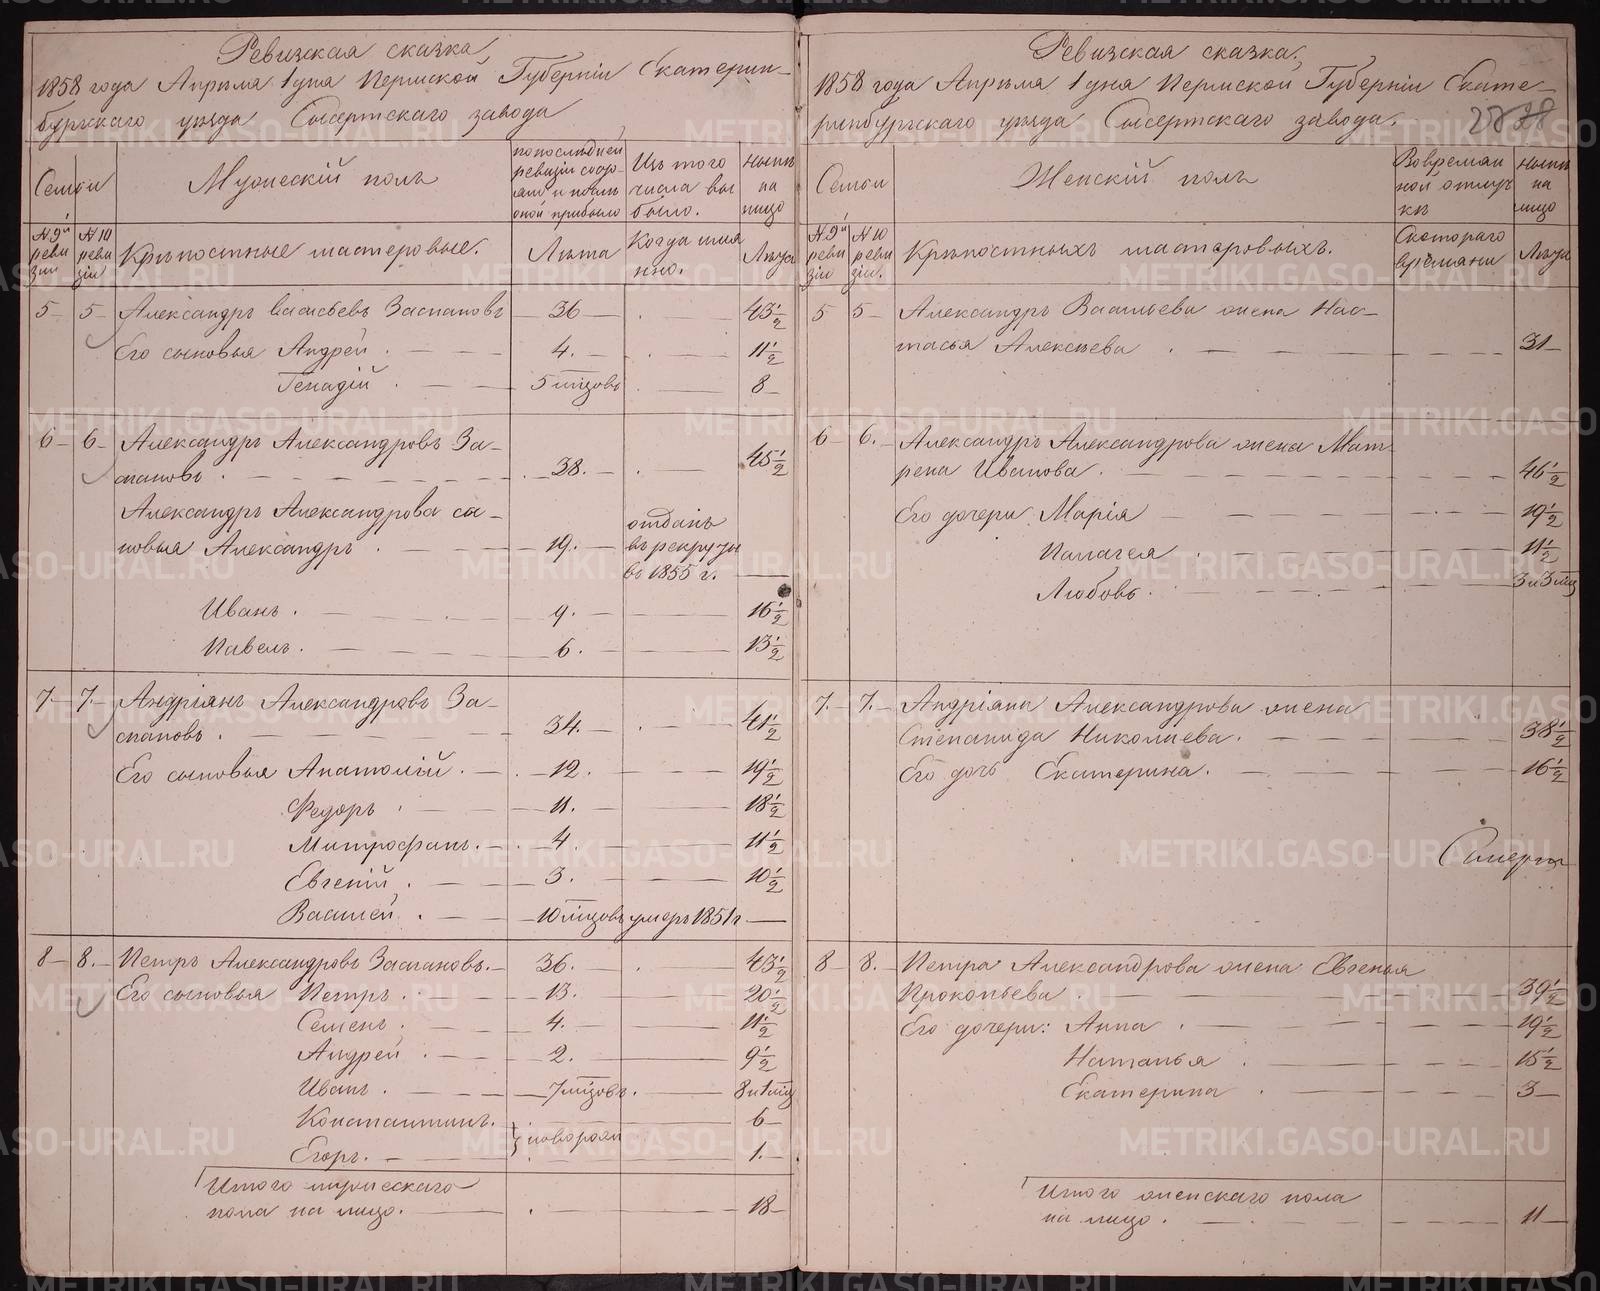 Ревизская сказка,
1858 года Апрѣля 1 дня Пермской Губерніи Екатерин-
бургскаго уѣзда Сысертскаго завода
Семьи
Мужескій полъ
по послѣдней
ревизіи состо-
яло и послѣ
оной прибыло
Изъ того
числа вы
было.
нынѣ
на
лицо
№ 9й
реви
зіи
№ 10
реви
зіи
Крѣпостные мастеровые.
Лѣта
Когда имя
нно.
Лѣта
5 5 Александръ Васильевъ Заспановъ 36 43½
Его сыновья Андрей 4. 11½
Генадій 5 мцовъ 8
6 6 Александръ Александровъ За-
спановъ 38. 45½
Александръ Александрова сы-
новья Александръ 19. отданъ
въ рекруты
въ 1855 г.
Иванъ 9. 16½
Павелъ 6. 13½
7 7. Андріянъ Александровъ За-
спановъ 34. 41½
Его сыновья Анатолій 12. 19½
Федоръ 11. 18½
Митрофанъ 4. 11½
Евгеній 3. 10½
Василей 10 мцовъ умеръ 1851 г
8 8. Петръ Александровъ Заспановъ 36. 43½
Его сыновья Петръ 13. 20½
Семенъ 4. 11½
Андрей 2. 9½
Иванъ 7 мцовъ. 8 и 1 мц
Константинъ. новорож 6
Егоръ. 1.
Итого мужескаго
пола на лицо. 18
Ревизская сказка,
1858 года Апрѣля 1 дня Пермской Губерніи Екате-
ринбургскаго уѣзда Сысертскаго завода.
28
Семьи
Женскій полъ
Во времян
ной отлуч
кѣ
нынѣ
на
лицо
№ 9й
реви
зіи
№ 10
реви
зіи.
Крѣпостныхъ мастеровыхъ.
Скотораго
времяни
Лѣта
5 5 Александръ Васильева жена Нас-
тасья Алексѣева 31
6 6. Александръ Александрова жена Мат-
рена Иванова 46½
Его дочери Марія 19½
Палагея 11½
Любовь. 3 и 3 мц
7. 7. Андріяна Александрова жена
Степанида Николаева. 38½
Его дочь Екатерина. 16½
8 8. Петра Александрова жена Евгенья
Прокопьева 39½
Его дочери: Анна 19½
Наталья 15½
Екатерина 3
Итого женскаго пола
на лицо. 11
METRIKI.GASO-URAL.RU